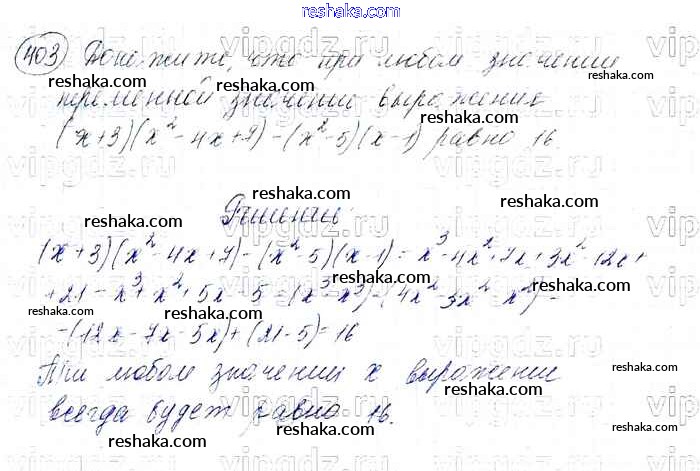 reshaka.ru
403 Докажите, что при любом значении
переменной значение выражения
(x+3)(x²-4x+7)-(x²-5)(x-1) равно 16.
Решение:
(x+3)(x²-4x+7)-(x²-5)(x-1)=x³-4x²+7x+3x²-12x+
+21-x³+x²+5x-5=(x³-x³)-(4x²-3x²-x²)-
-(12x-7x-5x)+(21-5)=16
При любом значении x выражение
всегда будет равно 16.